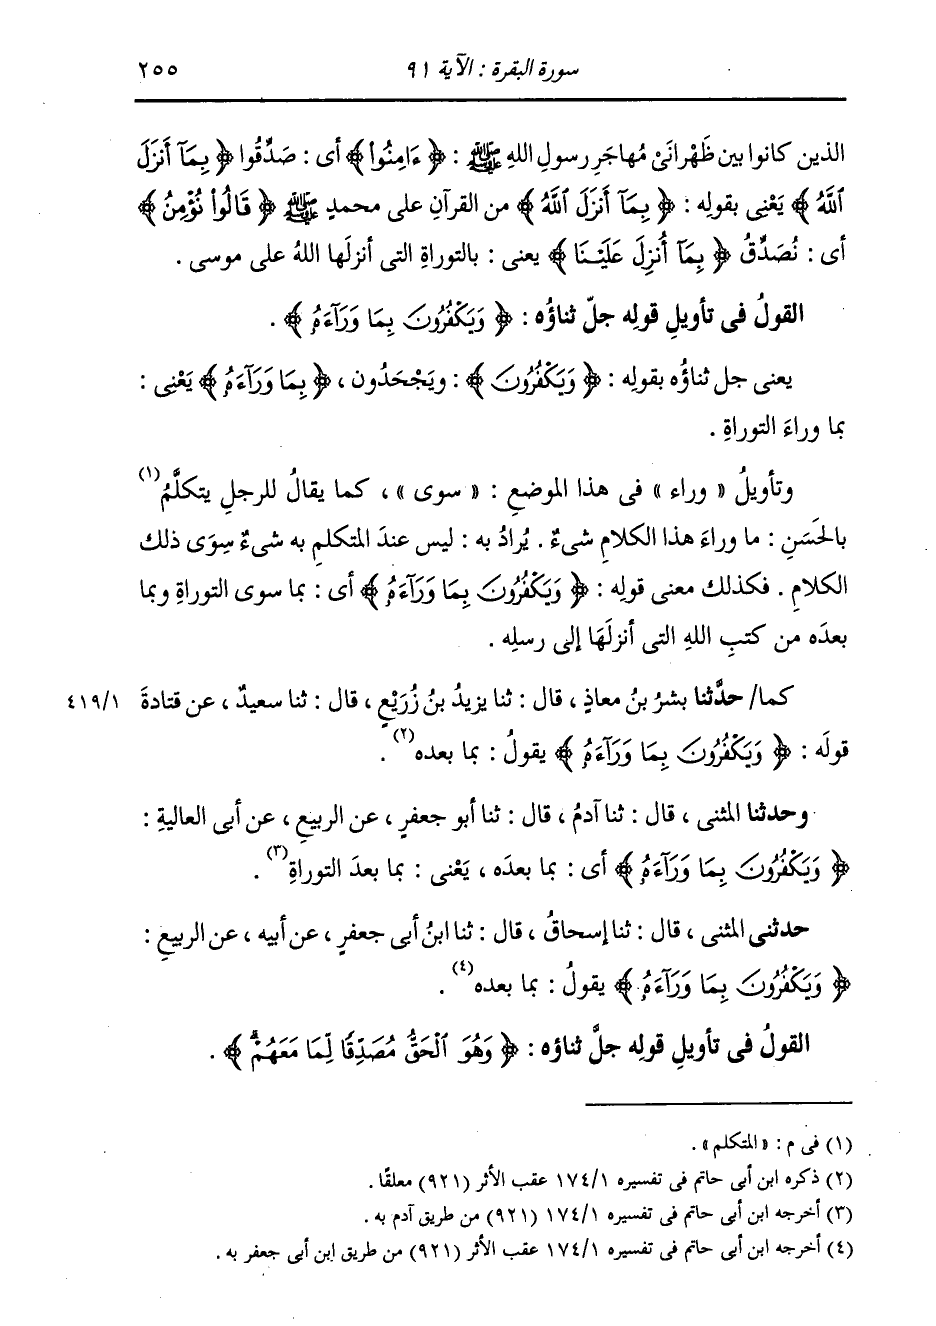 سورة البقرة : الآية ٩١
٢٥٥
الذين كانوا بين ظَهْرانَىْ مُهاجَرِ رسولِ اللهِ ﷺ : ﴿ ءَامِنُواْ ﴾ أى : صَدِّقُوا ﴿ بِمَآ أَنزَلَ
ٱللَّهُ ﴾ يَعْنِى بقولِه : ﴿ بِمَآ أَنزَلَ ٱللَّهُ ﴾ من القرآنِ على محمدٍ ﷺ ﴿ قَالُواْ نُؤْمِنُ ﴾
أى : نُصَدِّقُ ﴿ بِمَآ أُنزِلَ عَلَيْنَا ﴾ يعنى : بالتوراةِ التى أنزلَها اللهُ على موسى .
القولُ فى تأويلِ قولِه جلّ ثناؤُه : ﴿ وَيَكْفُرُونَ بِمَا وَرَآءَهُ ﴾ .
يعنى جل ثناؤُه بقولِه : ﴿ وَيَكْفُرُونَ ﴾ : ويَجْحَدُون ، ﴿ بِمَا وَرَآءَهُ ﴾ يَعْنِى :
بما وراءَ التوراةِ .
وتأويلُ « وراء » فى هذا الموضعِ : « سوى » ، كما يقالُ للرجلِ يتكلَّمُ (١)
بالحَسَنِ : ما وراءَ هذا الكلامِ شىءٌ . يُرادُ به : ليس عندَ المتكلمِ به شىءٌ سِوَى ذلك
الكلامِ . فكذلك معنى قولِه : ﴿ وَيَكْفُرُونَ بِمَا وَرَآءَهُ ﴾ أى : بما سوى التوراةِ وبما
بعدَه من كتبِ اللهِ التى أنزلَهَا إلى رسلِه .
كما/ حدَّثنا بشرُ بنُ معاذٍ ، قال : ثنا يزيدُ بنُ زُرَيْعٍ ، قال : ثنا سعيدٌ ، عن قتادةَ
٤١٩/١
قولَه : ﴿ وَيَكْفُرُونَ بِمَا وَرَآءَهُ ﴾ يقولُ : بما بعده (٢) .
وحدثنا المثنى ، قال : ثنا آدمُ ، قال : ثنا أبو جعفرٍ ، عن الربيعِ ، عن أبى العاليةِ :
﴿ وَيَكْفُرُونَ بِمَا وَرَآءَهُ ﴾ أى : بما بعدَه ، يَعْنى : بما بعدَ التوراةِ (٣) .
حدثنى المثنى ، قال : ثنا إسحاقُ ، قال : ثنا ابنُ أبى جعفرٍ ، عن أبيه ، عن الربيعِ :
﴿ وَيَكْفُرُونَ بِمَا وَرَآءَهُ ﴾ يقولُ : بما بعده (٤) .
القولُ فى تأويلِ قولِه جلَّ ثناؤه : ﴿ وَهُوَ ٱلْحَقُّ مُصَدِّقًا لِّمَا مَعَهُمْ ۗ ﴾ .
(١) فى م : « المتكلم » .
(٢) ذكره ابن أبى حاتم فى تفسيره ١٧٤/١ عقب الأثر (٩٢١) معلقًا .
(٣) أخرجه ابن أبى حاتم فى تفسيره ١٧٤/١ (٩٢١) من طريق آدم به .
(٤) أخرجه ابن أبى حاتم فى تفسيره ١٧٤/١ عقب الأثر (٩٢١) من طريق ابن أبى جعفر به .